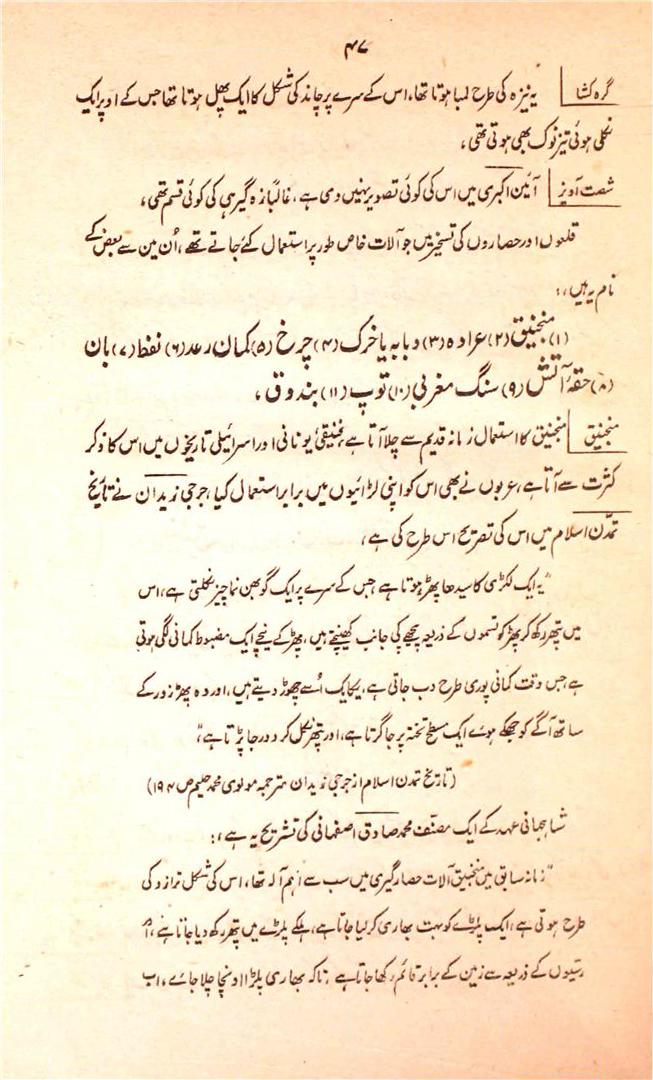 ۴۷
گرہ کشا یہ نیزہ کی طرح لمبا ہوتا تھا، اس کے سرے پر چاند کی شکل کا ایک پھل ہوتا تھا جس کے اوپر ایک
نکلی ہوئی تیز نوک بھی ہوتی تھی،
شصت آویز آئین اکبری میں اس کی کوئی تصویر نہیں دی ہے، غالباً زہ گیر ہی کی کوئی قسم تھی،
قلعوں اور حصاروں کی تسخیر میں جو آلات خاص طور پر استعمال کئے جاتے تھے، اُن مین سے بعض کے
نام یہ ہیں،:
(۱) منجنیق (۲) عرادہ (۳) دبابہ یا خرک (۴) چرخ (۵) کمان رعد (۶) نفط (۷) بان
(۸) حقۂ آتش (۹) سنگ مغربی (۱۰) توپ (۱۱) بندوق،
منجنیق منجنیق کا استعمال زمانہ قدیم سے چلا آتا ہے، یونانی اور اسرائیلی تاریخوں میں اس کا ذکر
کثرت سے آتا ہے، عربوں نے بھی اس کو اپنی لڑائیوں میں برابر استعمال کیا، جرجی زیدان نے تاریخ
تمدّن اسلام میں اس کی تصریح اس طرح کی ہے،
"یہ ایک لکڑی کا سیدھا پھڑ ہوتا ہے جس کے سرے پر ایک گوبھن نما چیز نکلتی ہے، اس
میں پتھر رکھ کر پھڑ کو تسموں کے ذریعہ پیچھے کی جانب کھینچتے ہیں، پھڑ کے نیچے ایک مضبوط کمانی لگی ہوتی
ہے، جس وقت کمانی پوری طرح دب جاتی ہے، یکایک اُسے چھوڑ دیتے ہیں، اور وہ پھڑ زور کے
ساتھ آگے کو جھکے ہوئے ایک مسطح تختہ پر جا گرتا ہے، اور پتھر نکل کر دور جا پڑتا ہے،"
(تاریخ تمدن اسلام از جرجی زیدان مترجمہ مولوی محمد حلیم ص ۱۹۴)
شاہجہانی عہد کے ایک مصنّف محمد صادق اصفہانی کی تشریح یہ ہے،:
"زمانہ سابق میں منجنیق آلات حصار گیری میں سب سے اہم آلہ تھا، اس کی شکل ترازو کی
طرح ہوتی ہے، ایک پلڑے کو بہت بھاری کر لیا جاتا ہے، ہلکے پلڑے میں پتھر رکھ دیا جاتا ہے،
رسّیوں کے ذریعہ سے زمین کے برابر قائم رکھا جاتا ہے تاکہ بھاری پلڑا اونچا چلا جائے، اب